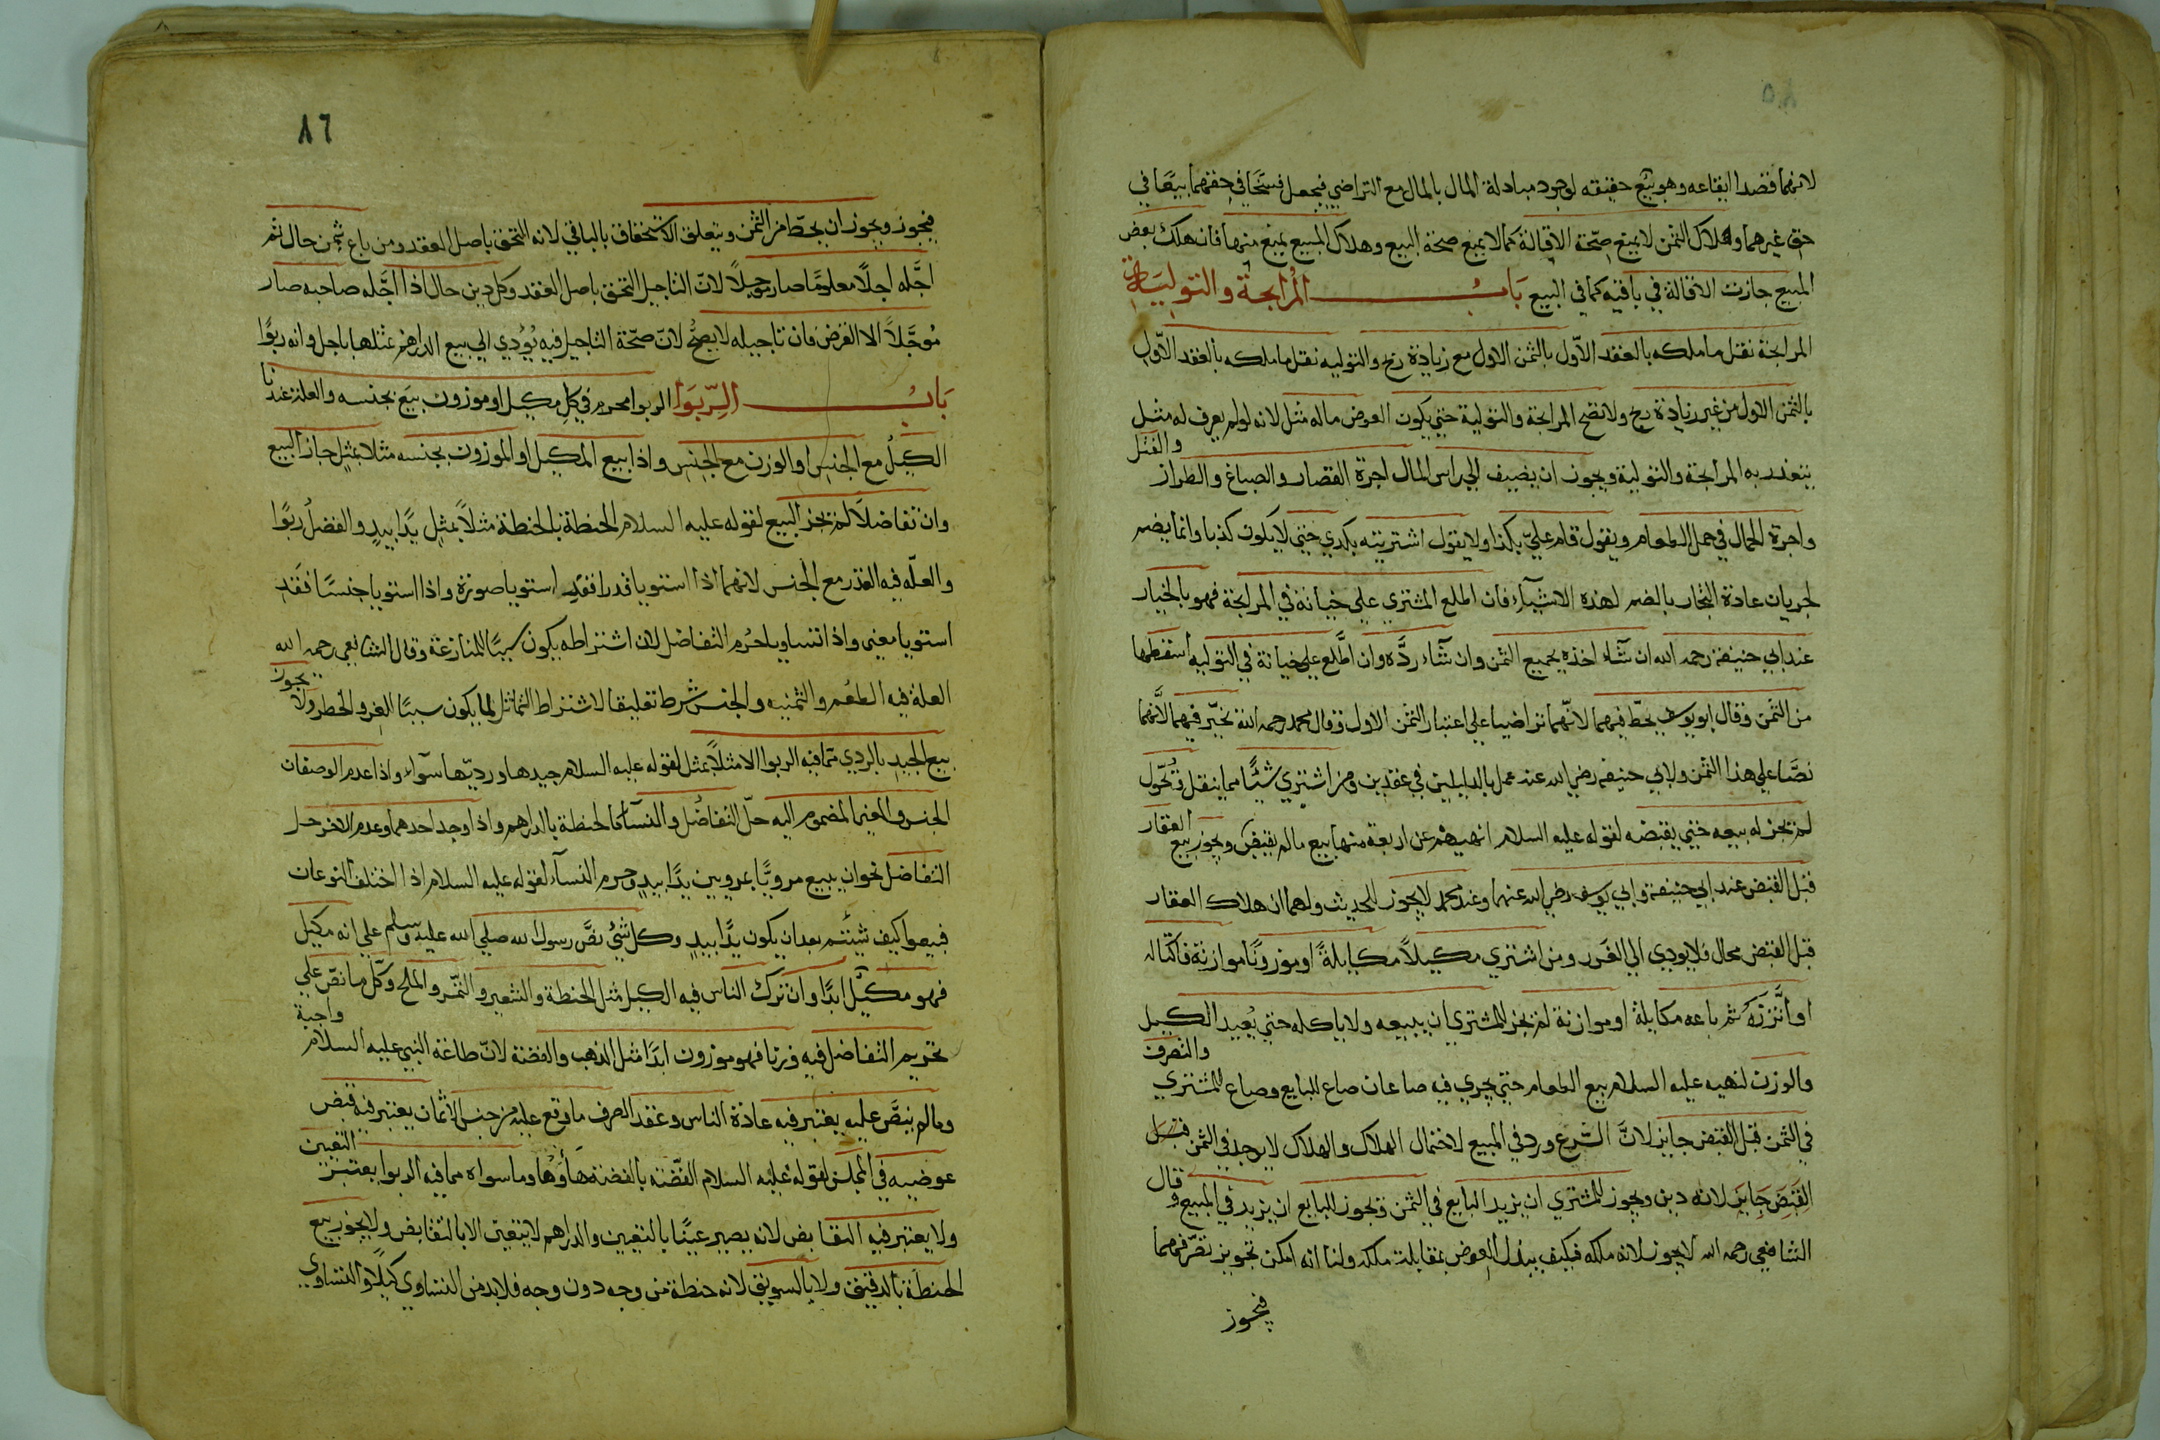 لانهما قصدا ايقاعه وهو بيع حقيقه لوجود مبادلة المال بالمال مع التراضي فيجعل فسخا في حقهما بيعا في
حق غيرهما وهلاك الثمن لا يمنع صحة الاقالة كما لا يمنع صحة البيع وهلاك المبيع يمنع منها فان هلك بعض
المبيع جازت الاقالة في باقيه كما في البيع باب المرابحة والتولية
المرابحة نقل ما ملكه بالعقد الاول بالثمن الاول مع زيادة ربح والتوليه نقل ما ملكه بالعقد الاول
بالثمن الاول من غير زيادة ربح ولا تصح المرابحة والتولية حتي يكون العوض ماله مثل لانه لو لم يعرف له مثل
يتعذر به المرابحة والتولية ويجوز ان يضيف الي راس المال اجرة القصار والصباغ والطراز والفتل
واجرة الحمال في حمل الطعام ويقول قام علي بكذا ولا يقول اشتريته بكذي حتي لا يكون كذبا وانما يضم
لجريان عادة التجار بالضم لهذه الاشياء فان اطلع المشتري علي خيانة في المرابحة فهو بالخيار
عند ابي حنيفة رحمه الله ان شاء اخذه بجميع الثمن وان شاء رده وان اطلع علي خيانة في التوليه اسقطها
من الثمن وقال ابو يوسف يحط فيهما لانهما تراضيا علي اعتبار الثمن الاول وقال محمد رحمه الله يخير فيهما لانهما
نصا علي هذا الثمن ولابي حنيفه رضي الله عنه عمل بالدليلين في عقدين ومن اشتري شيئا مما ينقل ويحول
لم يجز له بيعه حتي يقبضه لقوله عليه السلام انههم عن اربعة منها بيع ما لم يقبض ويجوز بيع العقار
قبل القبض عند ابي حنيفة وابي يوسف رضي الله عنهما وعند محمد لا يجوز للحديث ولهما ان هلاك العقار
قبل القبض محال فلا يودي الي الغرر ومن اشتري مكيلا مكايلة او موزونا موازنة فاكتاله
او اتزنه ثم باعه مكايلة او موازنة لم يجز للمشتري ان يبيعه ولا ياكله حتي يعيد الكيل
والوزن لنهيه عليه السلام بيع الطعام حتي يجري فيه صاعان صاع للبايع وصاع للمشتري والتصرف
في الثمن قبل القبض جايز لان الشرع ورد في المبيع لاحتمال الهلاك والهلاك لا يوجد في الثمن قبل
القبض جايز لانه دين ويجوز للمشتري ان يزيد البايع في الثمن ويجوز للبايع ان يزيد في المبيع وقال
الشافعي رحمه الله لا يجوز لانه ملكه فكيف يبذل العوض بمقابلة ملكه ولنا انه امكن تجويز تصرفهما
فيجوز
٨٦
فيجوز ويجوز ان يحط من الثمن ويتعلق الاستحقاق بالباقي لانه التحق باصل العقد ومن باع بثمن حال ثم
اجله اجلا معلوما صار موجلا لان التاجيل التحق باصل العقد وكل دين حال اذا اجله صاحبه صار
موجلا الا القرض فان تاجيله لا يصح لان صحة التاجيل فيه يؤدي الي بيع الدراهم بمثلها باجل وانه ربوا
باب الربوا الربوا محرم في كل مكيل او موزون بيع بجنسه والعلة عندنا
الكيل مع الجنس او الوزن مع الجنس واذا بيع المكيل او الموزون بجنسه مثلا بمثل جاز البيع
وان تفاضلا لم يجز البيع لقوله عليه السلام الحنطة بالحنطة مثلا بمثل يدا بيد والفضل ربوا
والعله فيه القدر مع الجنس لانهما اذا استويا قدرا فقد استويا صورة واذا استويا جنسا فقد
استويا معني واذا تساويا حرم التفاضل لان اشتراطه يكون سببا للمنازعة وقال الشافعي رحمه الله
العلة فيه الطعم والثمنيه والجنس شرط تعليقا لاشتراط التماثل لما يكون سببا الغرر والخطر ولا يجوز
بيع الجيد بالردي مما فيه الربوا الا مثلا بمثل لقوله عليه السلام جيدها ورديها سواء واذا عدم الوصفان
الجنس والمعني المضموم اليه حل التفاضل والنسآ كالحنطة بالدراهم واذا وجد احدهما وعدم الاخر حل
التفاضل نحو ان يبيع مرويا بمرويين يدا بيد وحرم النسآ لقوله عليه السلام اذا اختلف النوعان
فبيعوا كيف شئتم بعد ان يكون يدا بيد وكل شئ نص رسول الله صلي الله عليه وسلم علي انه مكيل
فهو مكيل ابدا وان ترك الناس فيه الكيل مثل الحنطة والشعير والتمر والملح وكل ما نص علي
تحريم التفاضل فيه وزنا فهو موزون ابدا مثل الذهب والفضة لان طاعة النبي عليه السلام واجبة
وما لم ينص عليه يعتبر فيه عادة الناس وعقد الصرف ما وقع عليه من جنس الاثمان يعتبر فيه قبض
عوضيه في المجلس لقوله عليه السلام الفضة بالفضة هاؤها وما سواه مما فيه الربوا يعتبر التعيين
ولا يعتبر فيه التقابض لانه يصير عينا بالتعيين والدراهم لا تتعين الا بالتقابض ولا يجوز بيع
الحنطة بالدقيق ولا بالسويق لانه حنطة من وجه دون وجه فلا بد من التساوي كيلا والتساوي